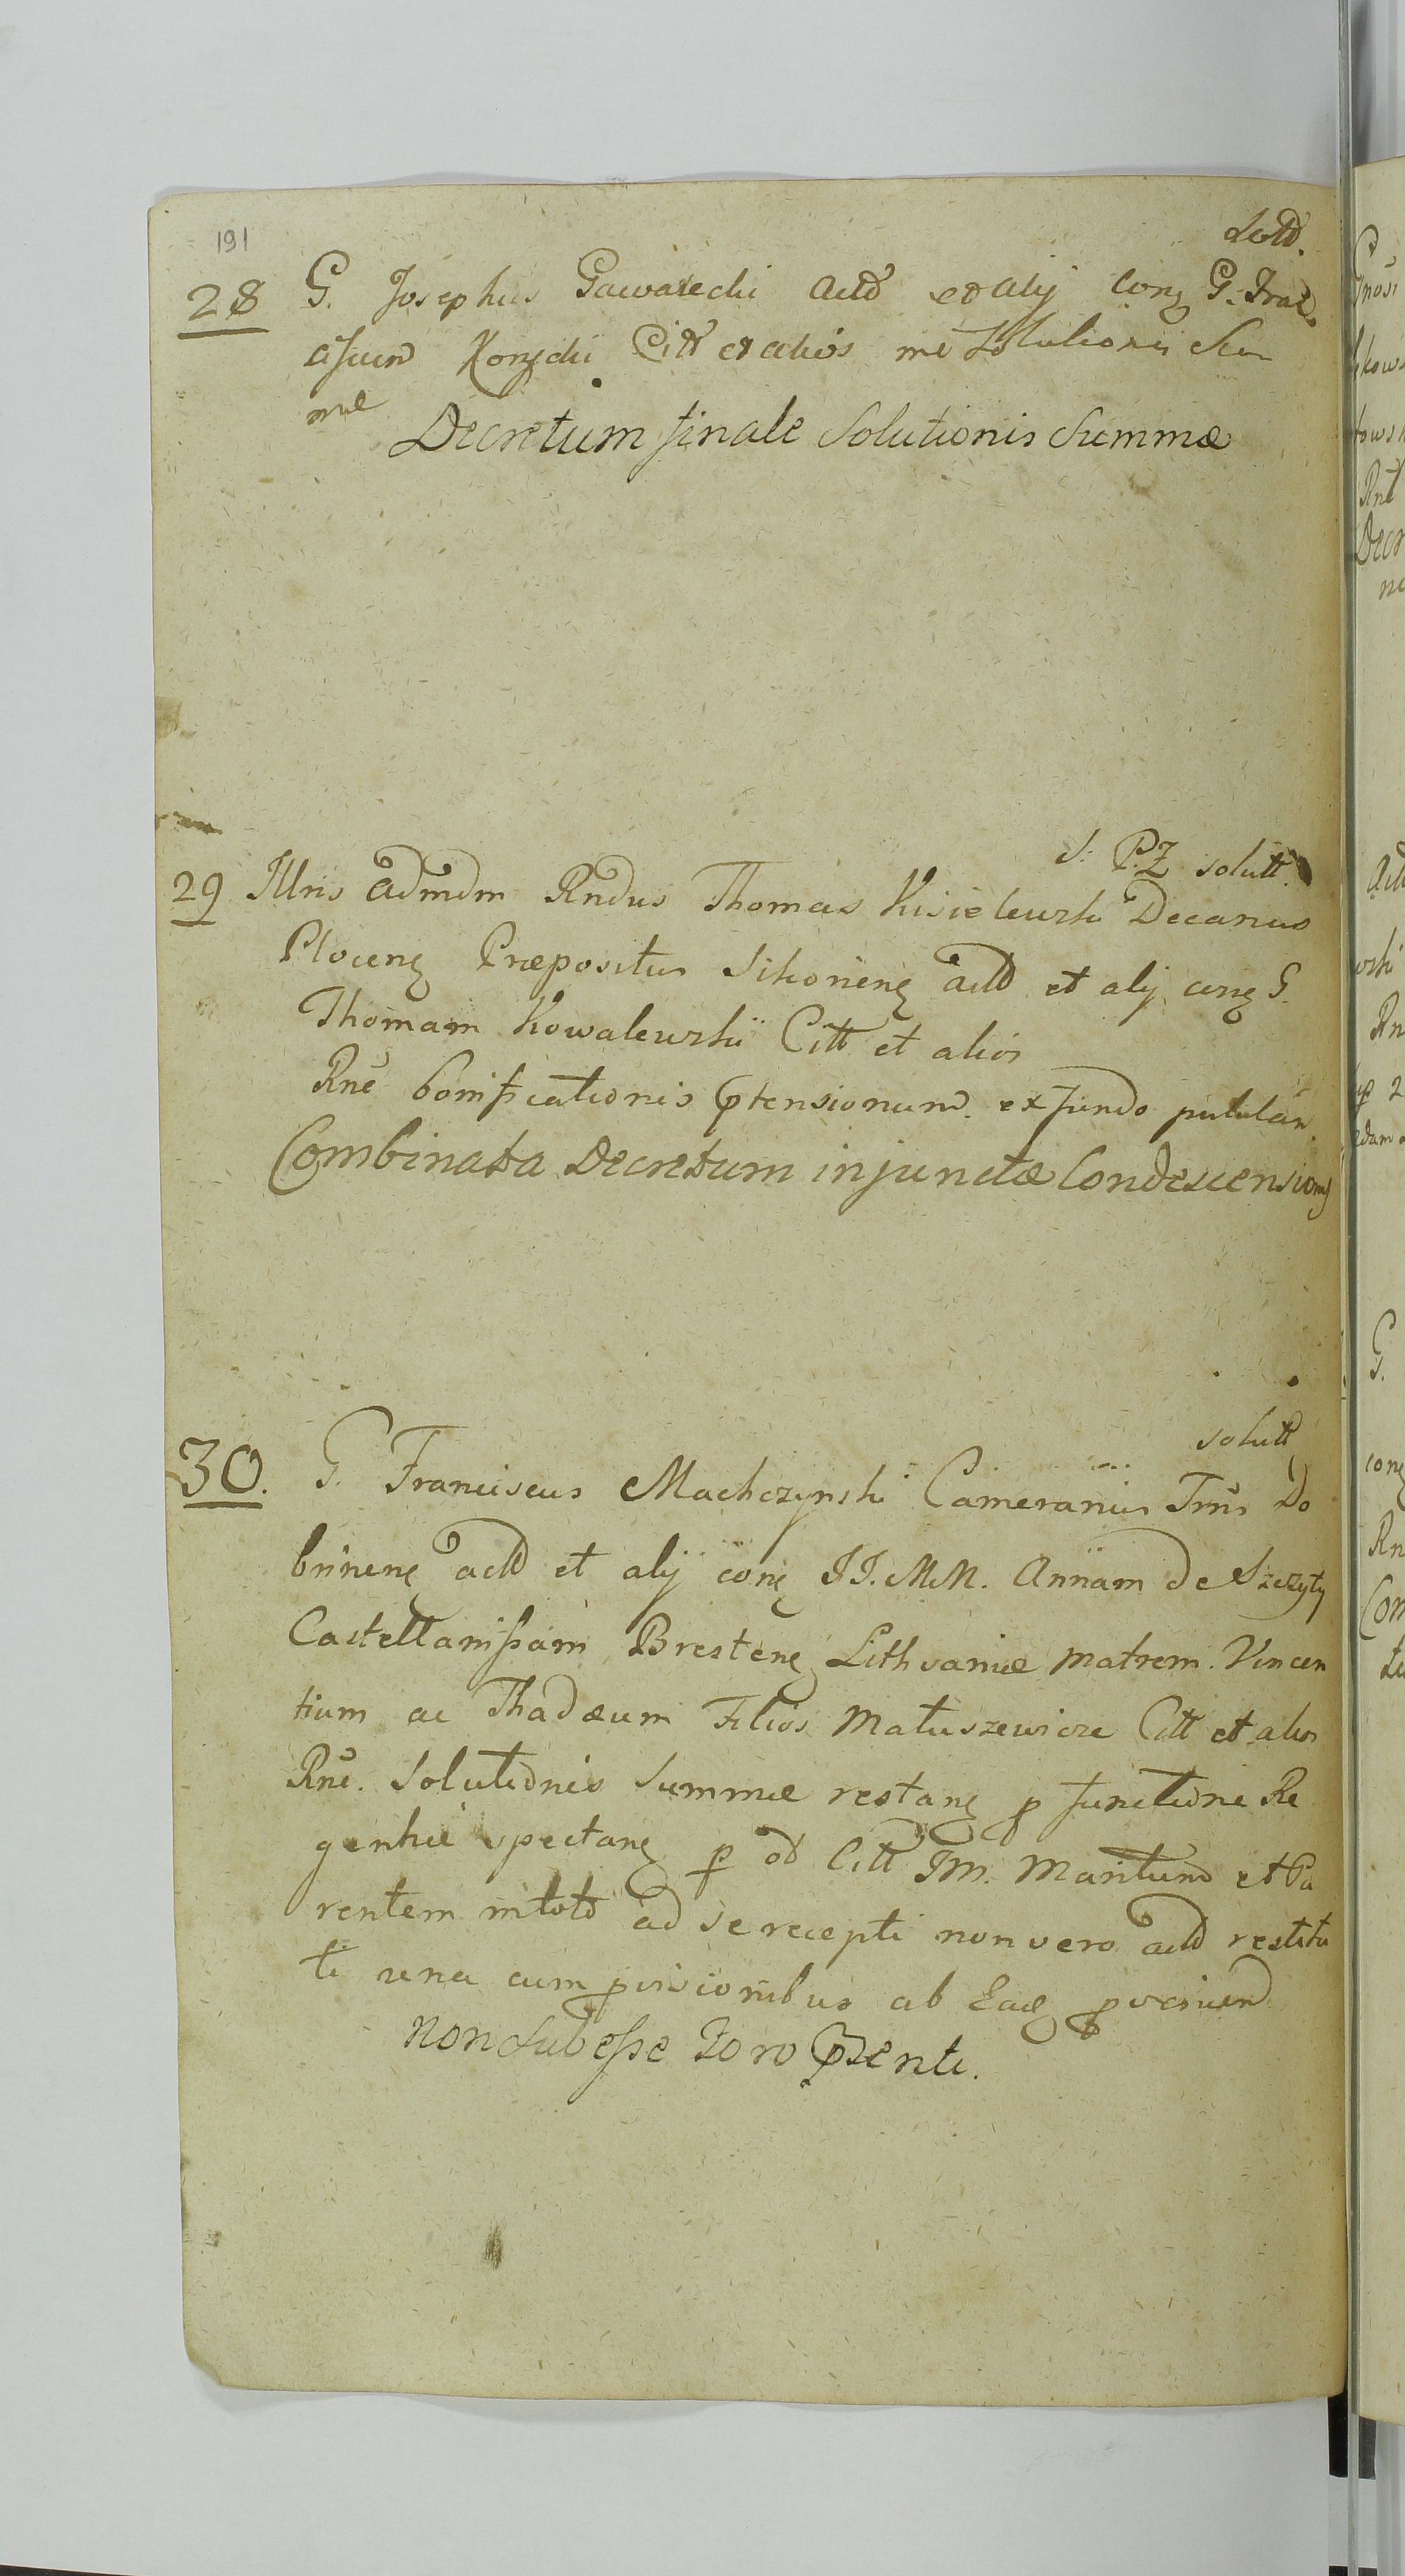 191
Solt.
28 G. Josephus Gawarecki Actt et alij cong G. Fran
ciscum Citt et alios rne Solutionis Sum
mæ
Decretum finale Solutionis Summæ
S: P.Z solutt.
29 Illris Admdm Rndus Thomas Kisielewski Decanus
Ploceng Præpositus Sikorieng actt et alij cong G.
Thomam Kowalewski Citt et alios
Rne bonificationis ptensionum ex fundo putulan
Combinata Decretum injunctæ Condescensionis
solutt
30. G. Franciscus Machczynski Camerarius Trris Do
brineng actt et alij cong JJ. MM. Annam de Szczyty
Castellanissam Bresteng Lithvaniæ matrem. Vincen
tium ac Thadæum Filios Matuszewicze Citt et alios
Rne. Solutionis Summæ restang p functione Re
gentiæ spectang p od Citt JM. Maritum et Pa
rentem in toto ad se recepti non vero actt restitu
ti una cum provisionibus ab Eadg
non Subesse Foro pzenti.